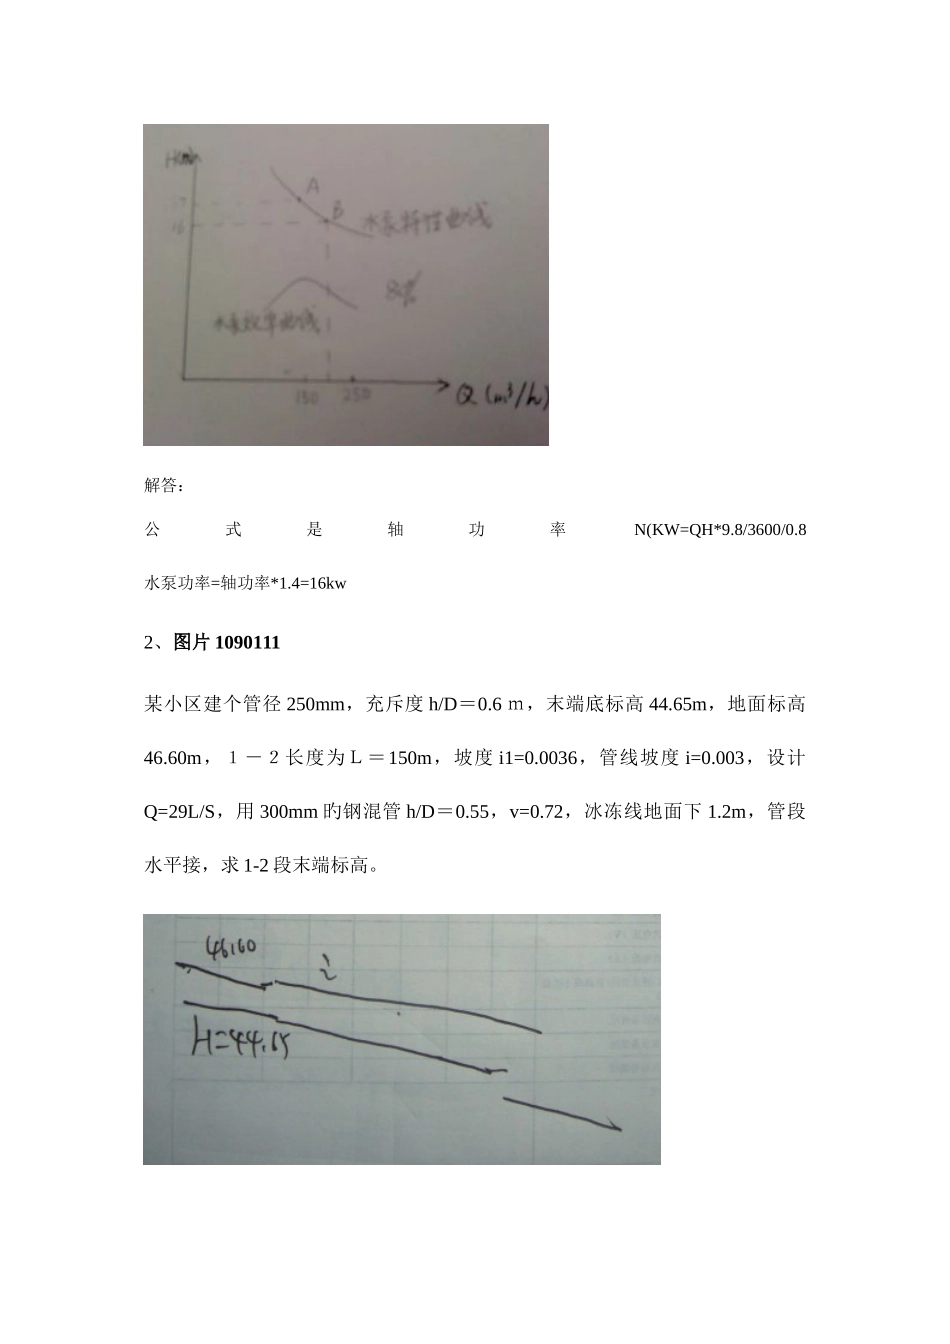 H(m)
A
17
B
16
水泵特性曲线
80%
水泵效率曲线
150 250
Q (m³/h)
解答：
公式是轴功率 N(KW=QH*9.8/3600/0.8
水泵功率=轴功率*1.4=16kw
2、图片 1090111
某小区建个管径 250mm，充斥度 h/D＝0.6ｍ，末端底标高 44.65m，地面标高
46.60m，１－２长度为Ｌ＝150m，坡度 i1=0.0036，管线坡度 i=0.003，设计
Q=29L/S，用 300mm 旳钢混管 h/D＝0.55，v=0.72，冰冻线地面下 1.2m，管段
水平接，求 1-2 段末端标高。
46.60
i
H=44.65